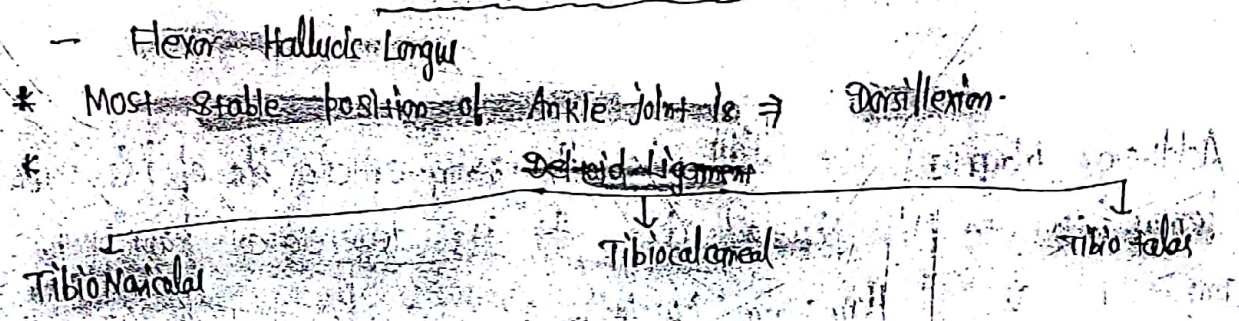 - Flexor Hallucis Longus
* Most Stable position of Ankle joint is ⇒ Dorsiflexion.
* Deltoid Ligament
TibioNavicular Tibiocalcaneal Tibio talas